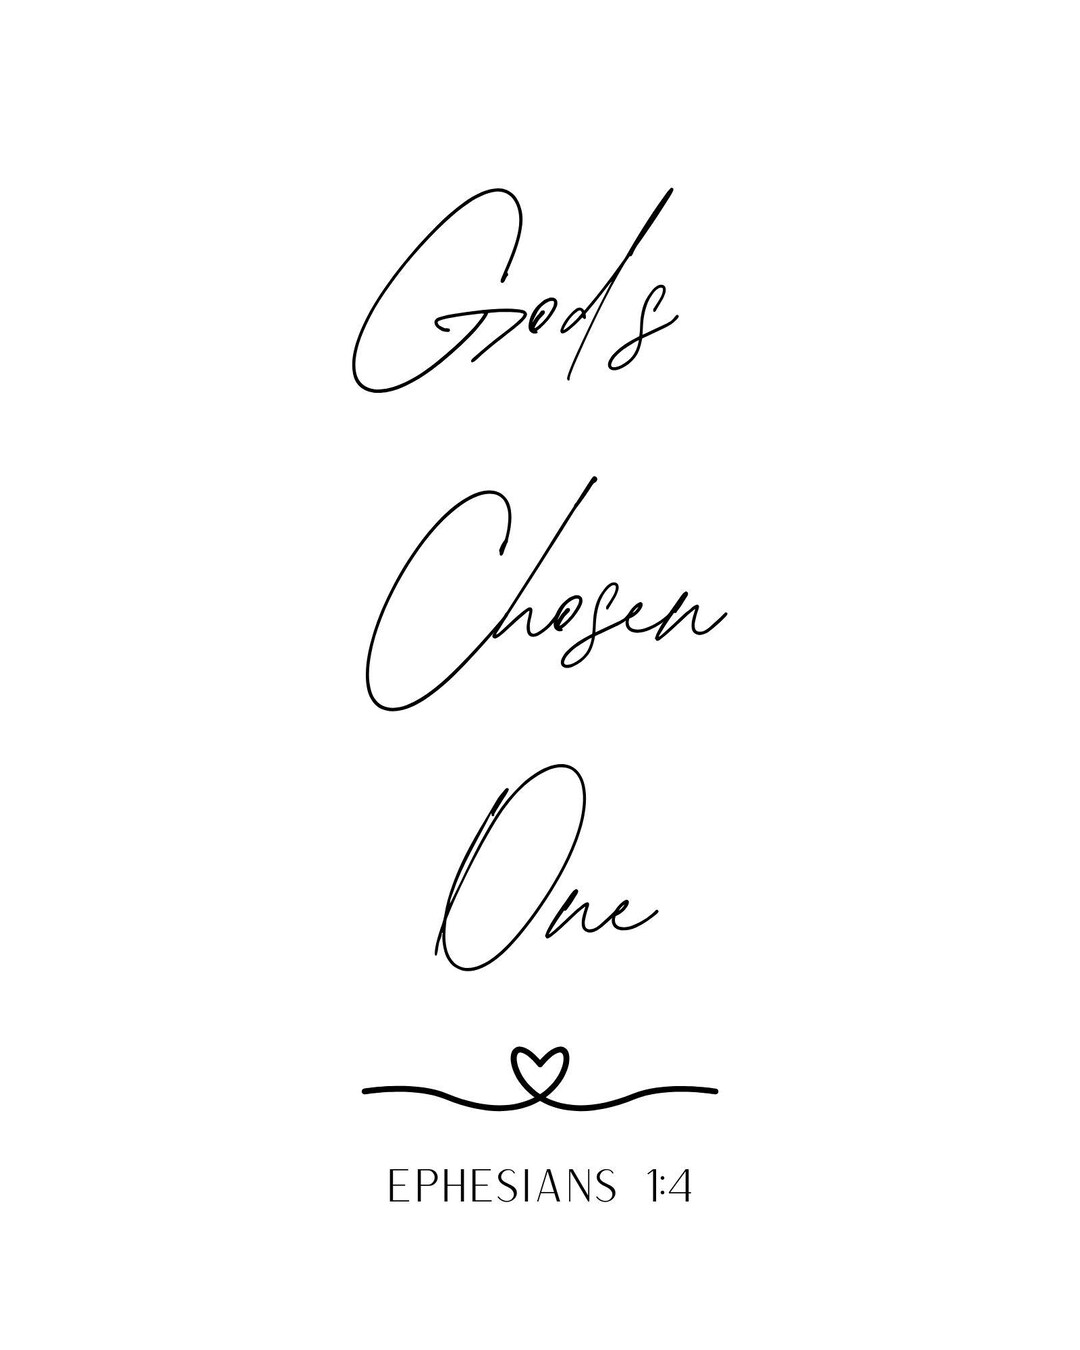 Gods
Chosen
One
EPHESIANS 1:4